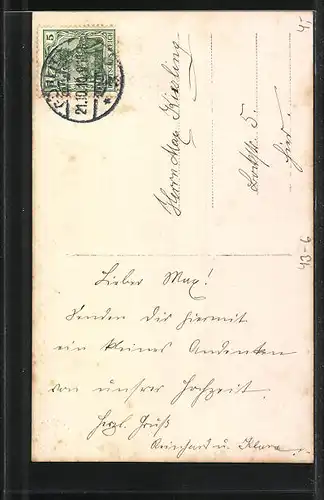 5
21.10.
Herrn Max Kissling
5.
hier.
4,
43-6
Lieber Max!
Senden dir hiermit
ein kleines Andenken
von unsrer Hochzeit.
Herzl. Gruß
Reinhard u. Klara.